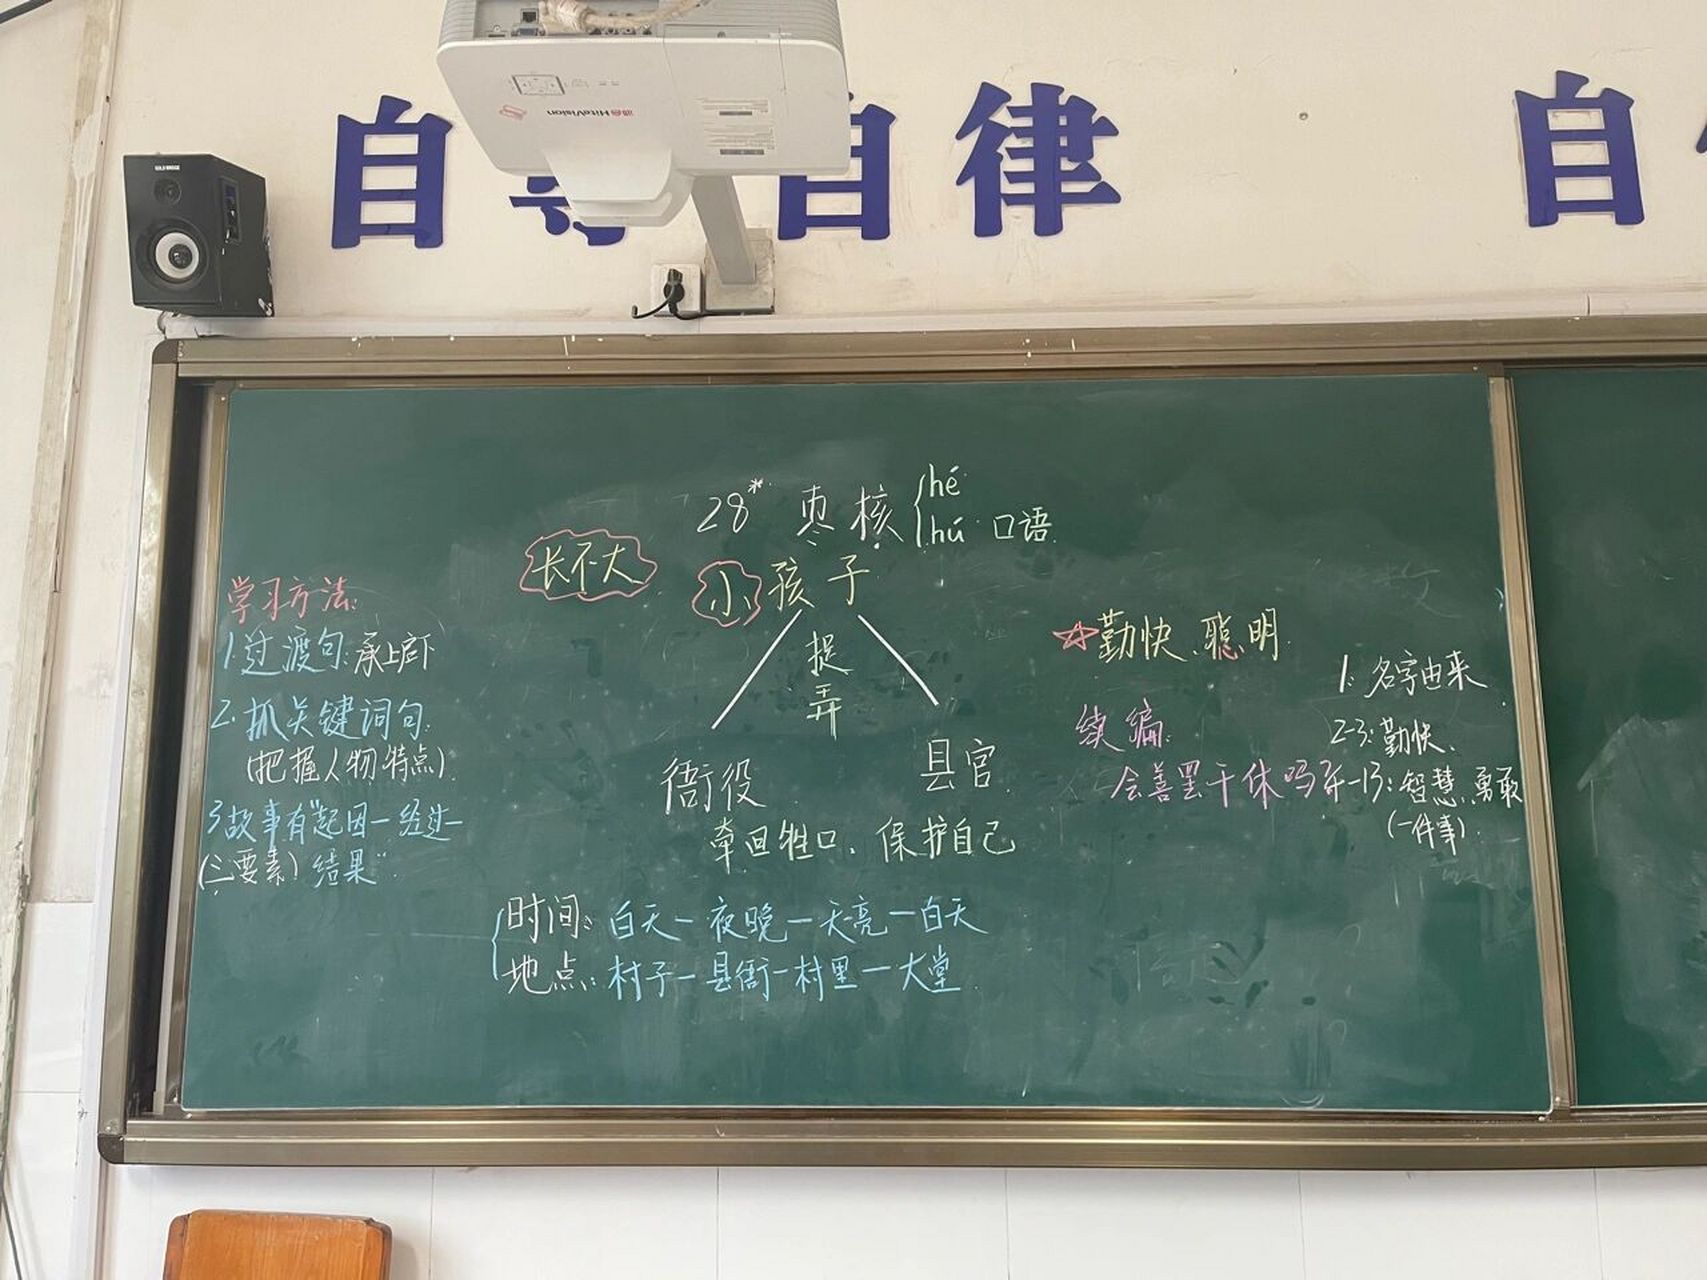 自尊自律 自
HiteVision
28* 枣核 hé
hú 口语
长不大
小孩子
捉弄
衙役 县官
牵回牲口、保护自己
时间：白天－夜晚－天亮－白天
地点：村子－县衙－村里－大堂
学习方法：
1.过渡句：承上启下
2.抓关键词句.
(把握人物特点).
3.故事有"起因－经过－
(三要素) 结果"
☆勤快、聪明.
续编.
会善罢干休吗?
1: 名字由来
2-3: 勤快、
4-13: 智慧、勇敢
(一件事).